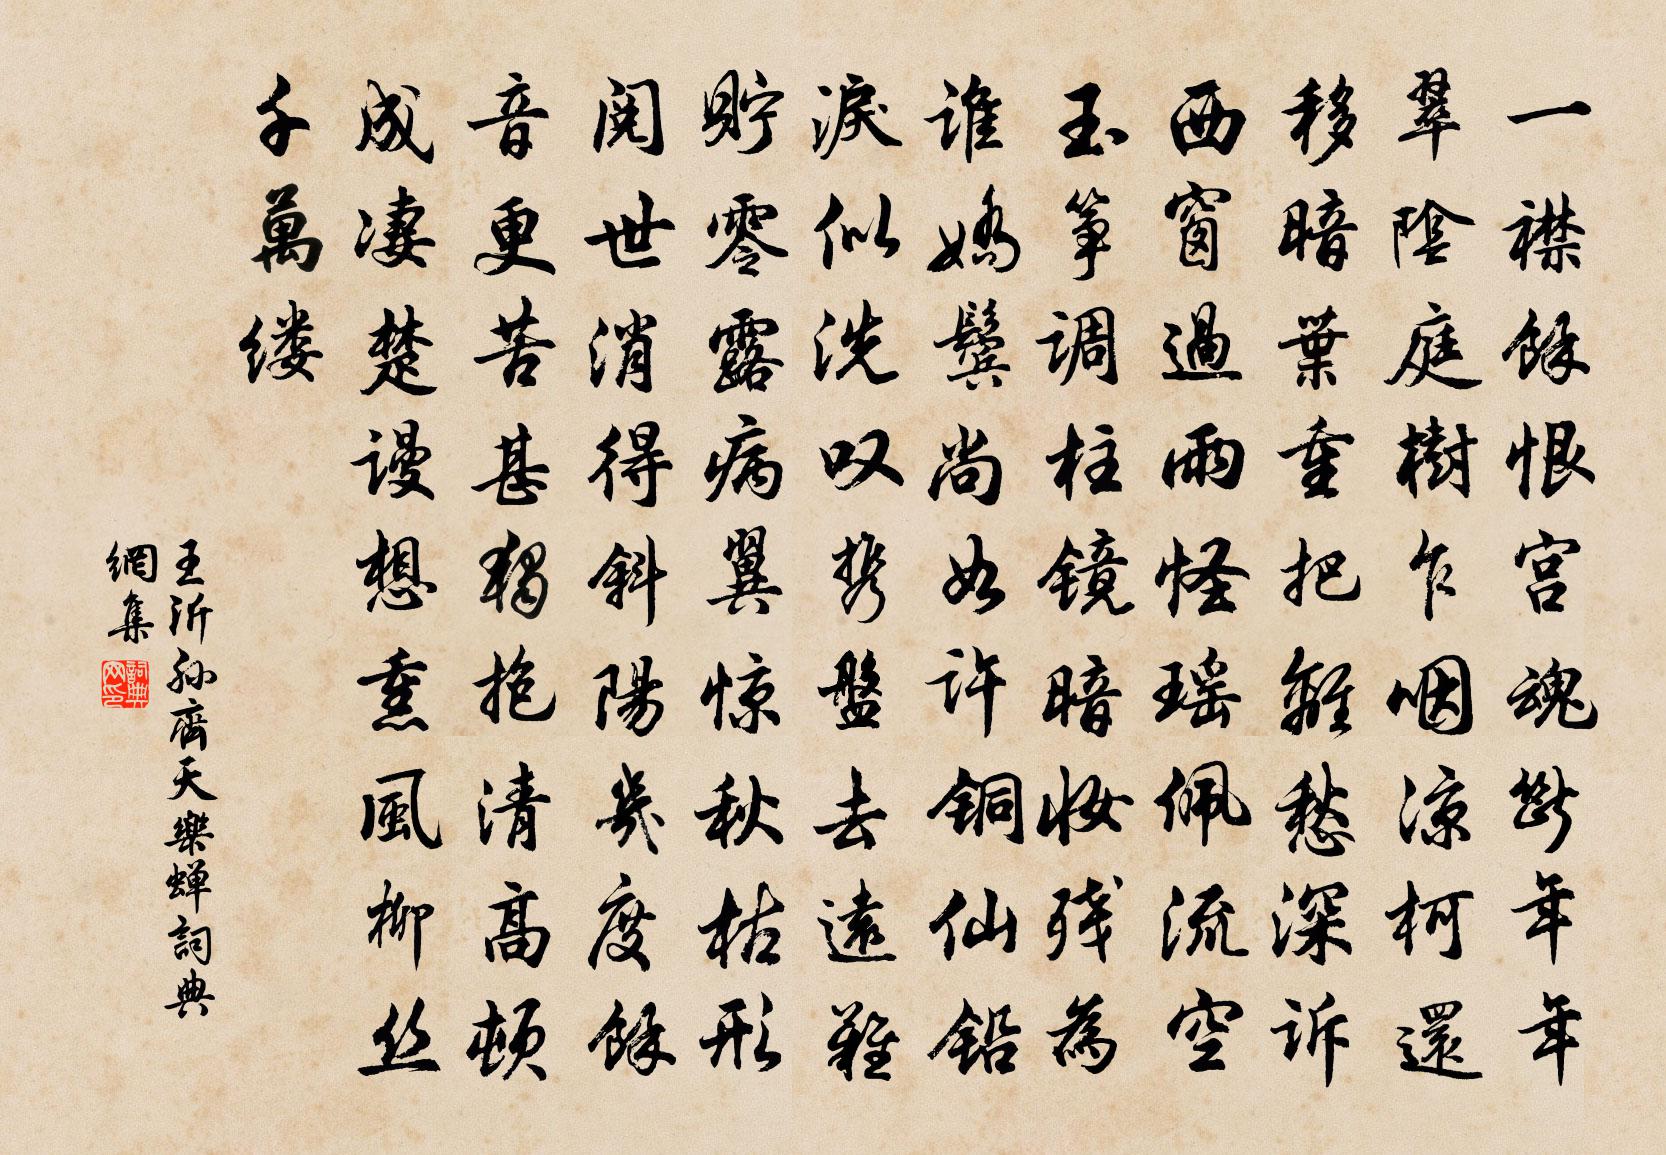 一襟餘恨宮魂斷年年
翠陰庭樹乍咽涼柯還
移暗葉重把離愁深訴
西窗過雨怪瑶佩流空
玉筝調柱镜暗妆残為
谁嬌鬓尚如许铜仙铅
淚似洗叹携盤去遠難
貯零露病翼惊秋枯形
阅世消得斜陽幾度餘
音更苦甚獨抱清高頓
成凄楚谩想熏風柳丝
千萬缕
王沂孙齊天樂蝉詞典
網集
詞典
网印